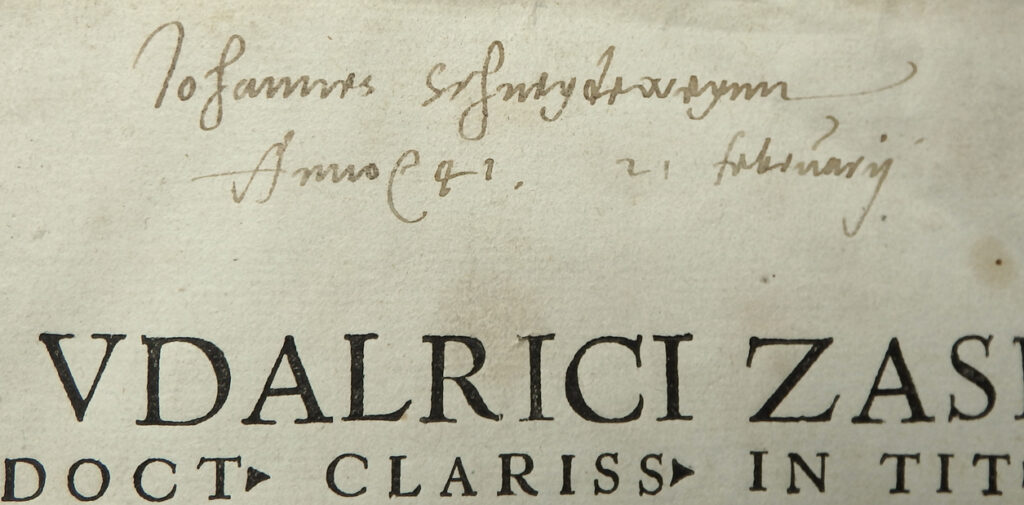 Johannes Schneydeweynn
Anno 41. 21 februarij
VDALRICI ZASI
DOCT▸ CLARISS▸ IN TIT